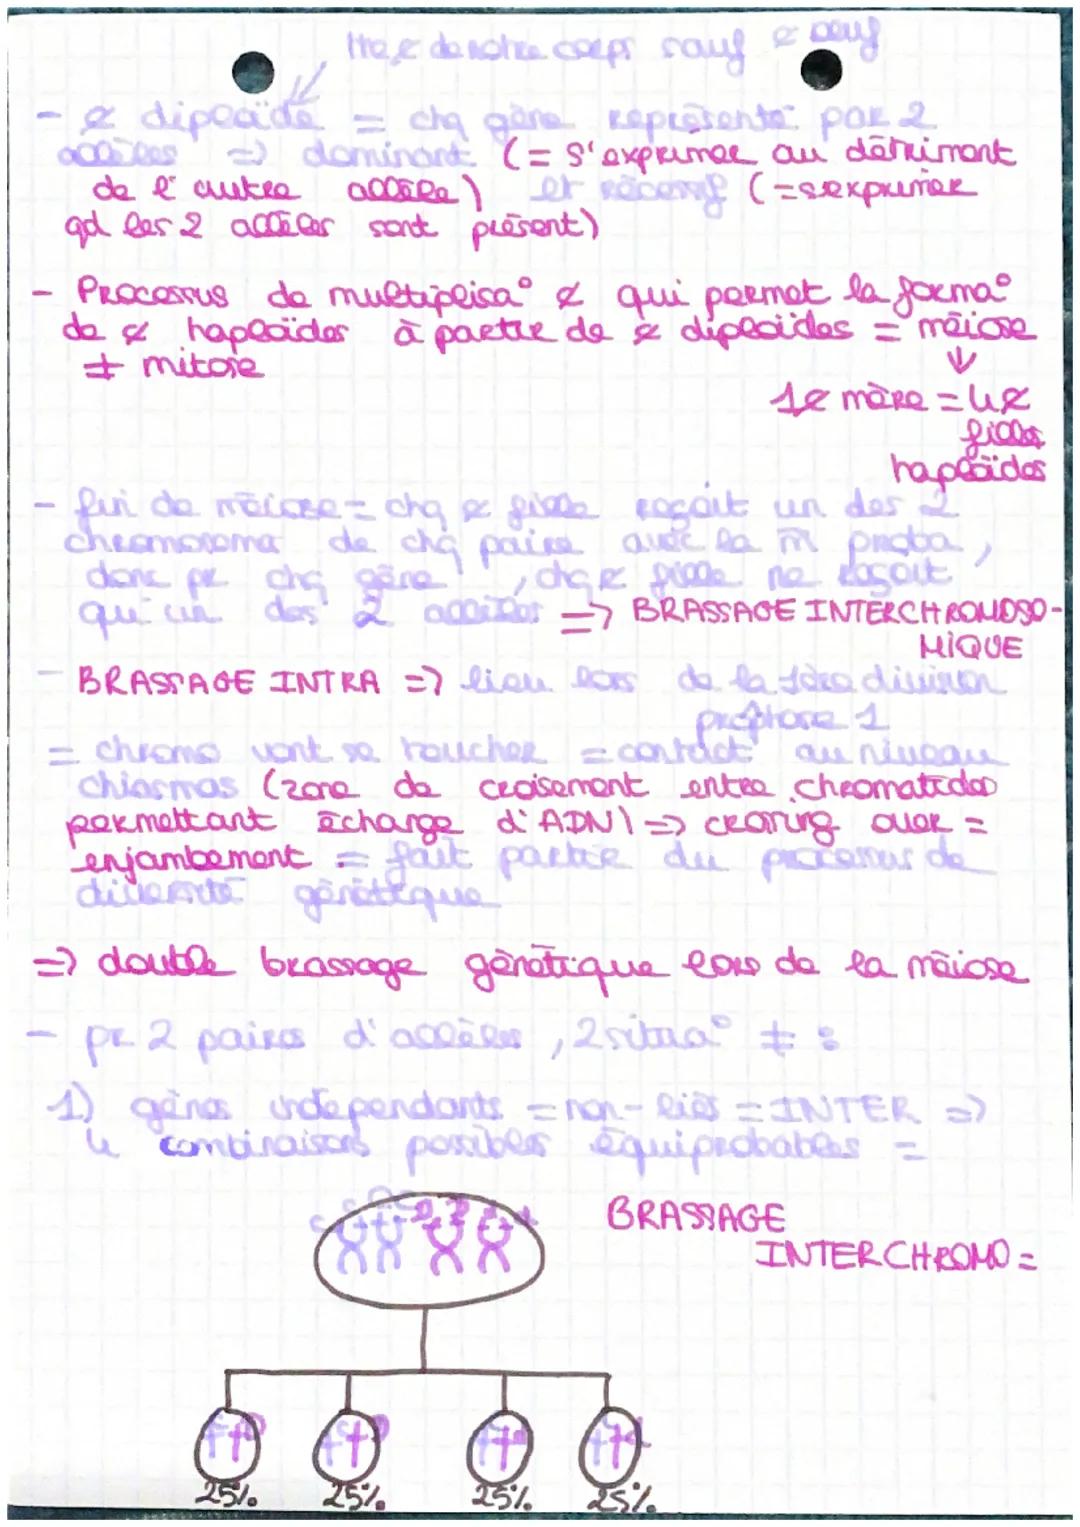 de notre corps sauf œuf
- ¢ diploïde = chq gène représenté par 2
allèles => dominant (= s'exprimer au détriment
de l'autre allèle) et récessif (= s'exprimer
qd les 2 allèles sont présent)
- Processus de multiplica° ¢ qui permet la forma°
de ¢ haploïdes à partir de ¢ diploïdes = méiose
≠ mitose
1¢ mère = 4¢
filles
haploïdes
- fin de méiose = chq ¢ fille reçoit un des 2
chromosome de chq paire avec la m̂ proba,
donc pr chq gène, chq ¢ fille ne reçoit
qu'un des 2 allèles => BRASSAGE INTERCHROMOSO-
MIQUE
- BRASSAGE INTRA => lieu lors de la 1ère division
prophase 1
= chromo vont se toucher = contact au niveau
chiasmas (zone de croisement entre chromatides
permettant échange d'ADN) => crossing over =
enjambement = fait partie du processus de
diversité génétique
=> double brassage génétique lors de la méiose
- pr 2 paires d'allèles, 2 situa° ≠ :
1) gènes indépendants = non-liés = INTER =>
4 combinaisons possibles équiprobables =
BRASSAGE
INTERCHROMO =
25% 25% 25% 25%